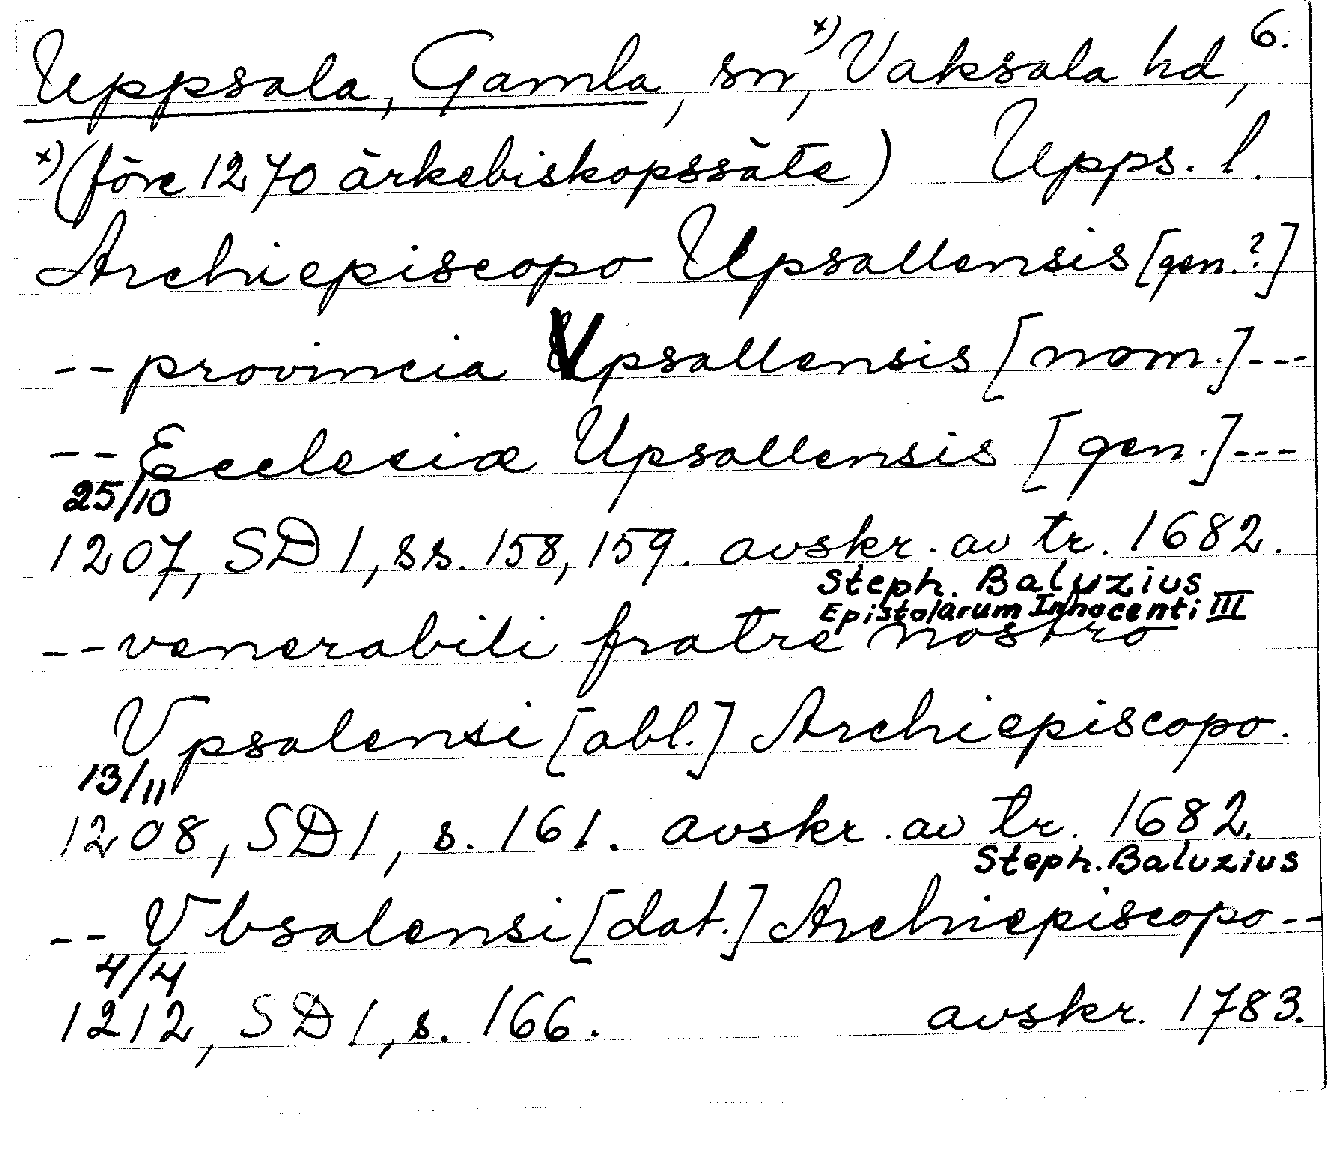 Uppsala, Gamla, sn, x) Vaksala hd, 6.
x) (före 1270 ärkebiskopssäte) Upps. l.
Archiepiscopo Upsallensis [gen.?]
-- provincia Vpsallensis [nom.] ---
-- Ecclesiæ Upsallensis [gen.] ---
25/10
1207, SD 1, ss. 158, 159. avskr. av tr. 1682.
Steph. Baluzius
Epistolarum Innocenti III
-- venerabili fratre nostro
Vpsalensi [abl.] Archiepiscopo.
13/11
1208, SD 1, s. 161. avskr. av tr. 1682.
Steph. Baluzius
-- Vbsalensi [dat.] Archiepiscopo --
4/4
1212, SD 1, s. 166. avskr. 1783.